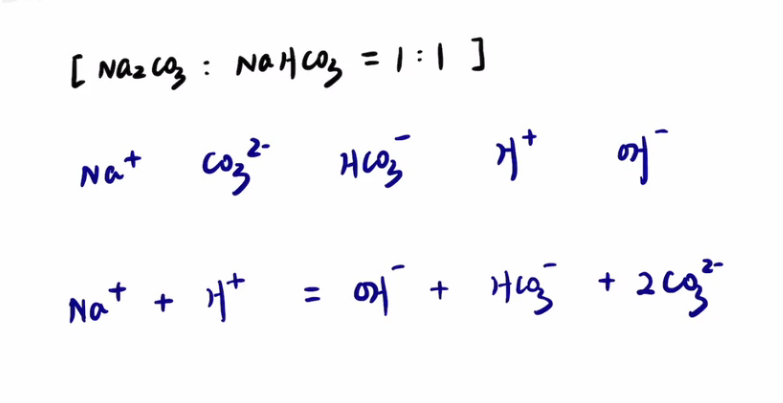 [ Na₂CO₃ : NaHCO₃ = 1 : 1 ]
Na⁺ CO₃²⁻ HCO₃⁻ H⁺ OH⁻
Na⁺ + H⁺ = OH⁻ + HCO₃⁻ + 2CO₃²⁻